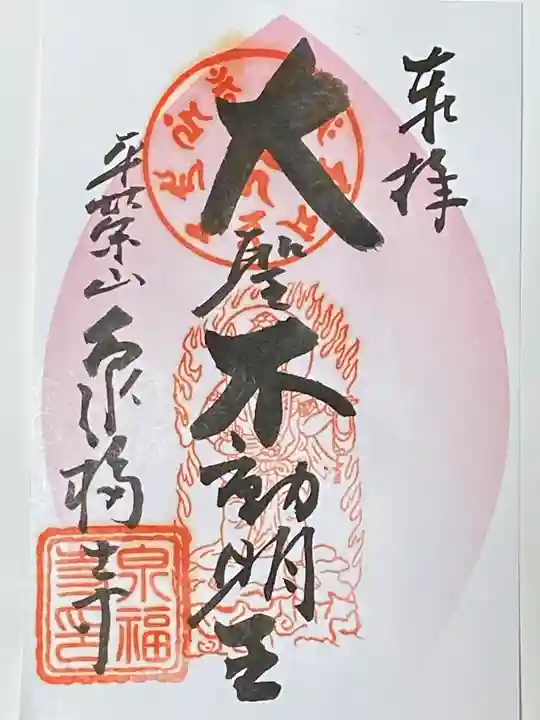 奉拝
大聖不動明王
平等山
泉福寺
泉福寺印